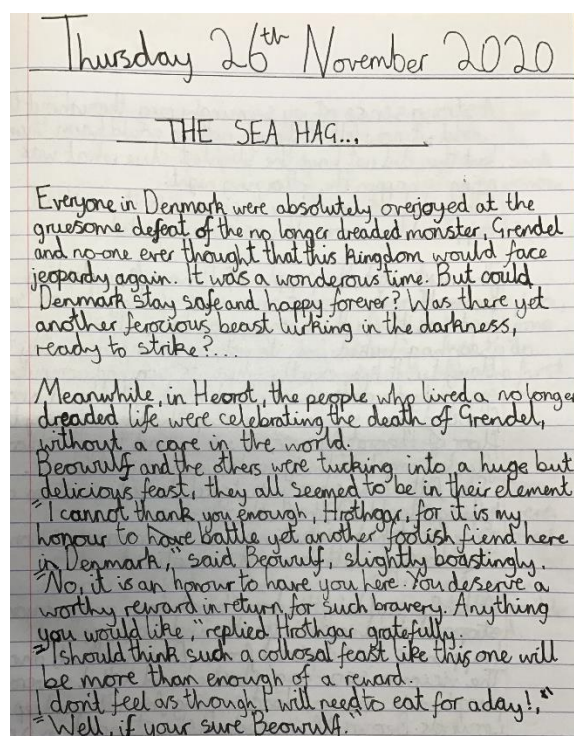 Thursday 26th November 2020
THE SEA HAG...
Everyone in Denmark were absolutely overjoyed at the
gruesome defeat of the no longer dreaded monster, Grendel
and no-one ever thought that this kingdom would face
jeopardy again. It was a wonderous time. But could
Denmark stay safe and happy forever? Was there yet
another ferocious beast lurking in the darkness,
ready to strike?...
Meanwhile, in Heorot, the people who lived a no longer
dreaded life were celebrating the death of Grendel,
without a care in the world.
Beowulf and the others were tucking into a huge but
delicious feast, they all seemed to be in their element
"I cannot thank you enough, Hrothgar, for it is my
honour to have battle yet another foolish fiend here
in Denmark," said Beowulf, slightly boastingly.
"No, it is an honour to have you here. You deserve a
worthy reward in return, for such bravery. Anything
you would like," replied Hrothgar gratefully.
"I should think such a collosal feast like this one will
be more than enough of a reward.
I don't feel as though I will need to eat for a day!,"
"Well, if your sure Beowulf."